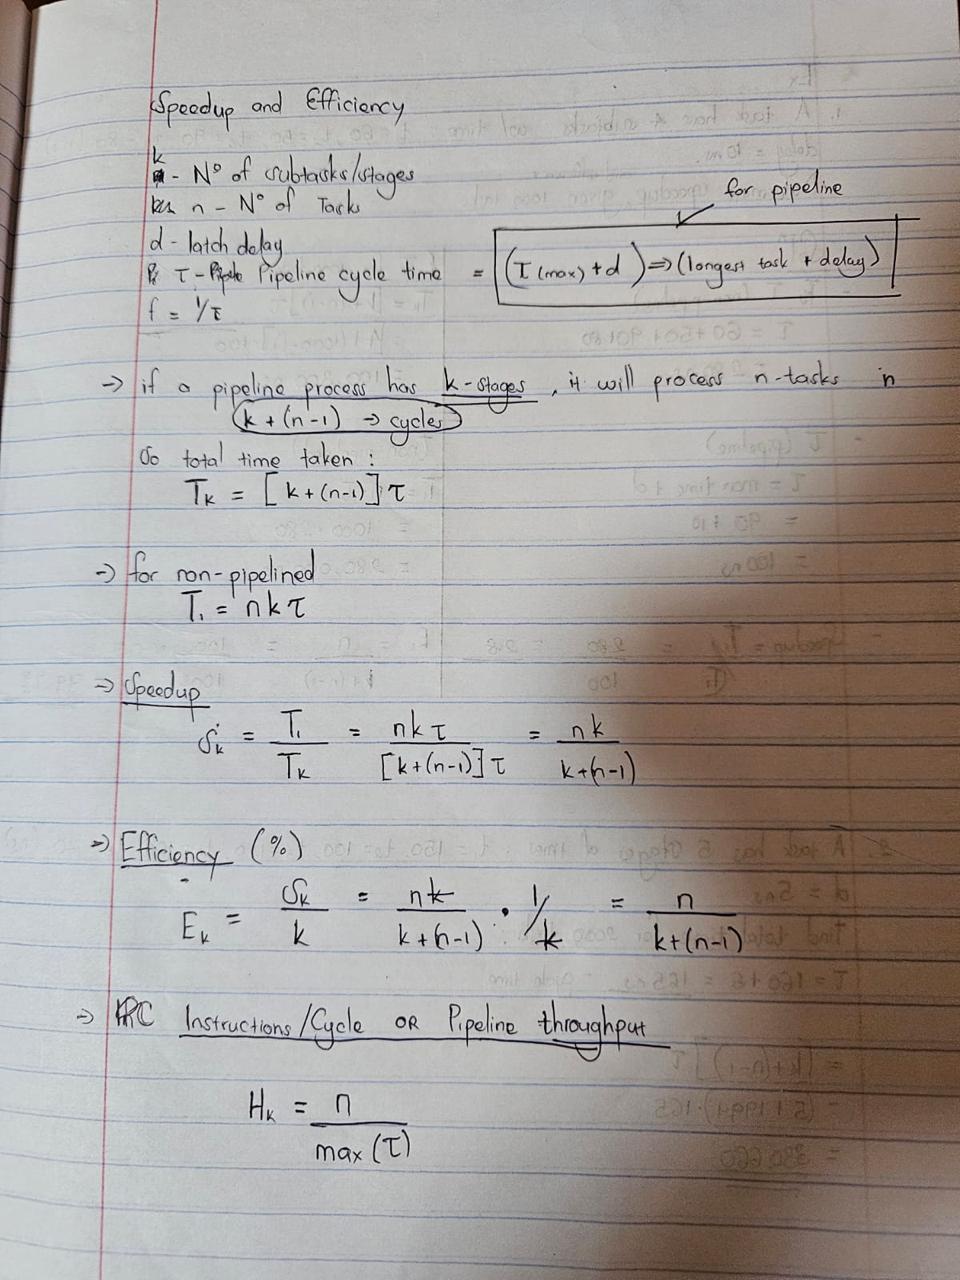 Speedup and Efficiency
k - Nº of subtasks/stages
n - Nº of Tasks
for pipeline
d - latch delay
τ - Pipeline cycle time = (τ(max) + d) => (longest task + delay)
f = 1/τ
-> if a pipeline process has k-stages, it will process n-tasks in
k + (n-1) -> cycles
So total time taken :
Tk = [k + (n-1)] τ
-> for non-pipelined
T1 = n k τ
-> Speedup
Sk = T1/Tk = nkτ/[k+(n-1)]τ = nk/k+(n-1)
-> Efficiency (%)
Ek = Sk/k = nk/k+(n-1) · 1/k = n/k+(n-1)
-> IPC Instructions/Cycle OR Pipeline throughput
Hk = n/max(τ)